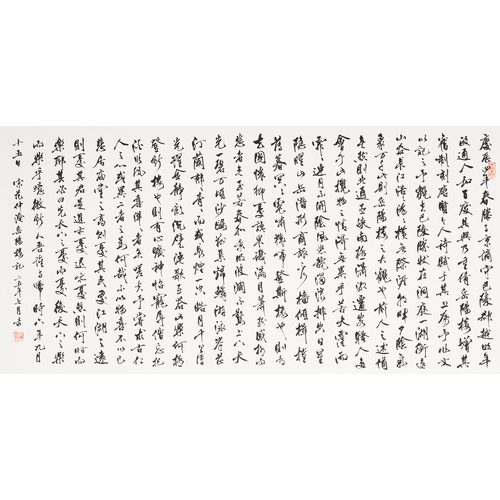 慶曆四年春滕子京謫守巴陵郡越明年
政通人和百廢具興乃重脩岳陽樓增其
舊制刻唐賢今人詩賦于其上屬予作文
以記之予觀夫巴陵勝狀在洞庭一湖銜遠
山吞長江浩浩湯湯橫無際涯朝暉夕陰氣
象萬千此則岳陽樓之大觀也前人之述備
矣然則北通巫峽南極瀟湘遷客騷人多
會于此覽物之情得無異乎若夫霪雨
霏霏連月不開陰風怒號濁浪排空日星
隱曜山岳潛形商旅不行檣傾楫摧
薄暮冥冥虎嘯猿啼登斯樓也則有
去國懷鄉憂讒畏譏滿目蕭然感極而
悲者矣至若春和景明波瀾不驚上下天
光一碧萬頃沙鷗翔集錦鱗游泳岸芷
汀蘭郁郁青青而或長煙一空皓月千里浮
光躍金靜影沉璧漁歌互答此樂何極
登斯樓也則有心曠神怡寵辱偕忘把酒
臨風其喜洋洋者矣嗟夫予嘗求古仁
人之心或異二者之為何哉不以物喜不以己
悲居廟堂之高則憂其民處江湖之遠
則憂其君是進亦憂退亦憂然則何時而
樂耶其必曰先天下之憂而憂後天下之樂
而樂乎噫微斯人吾誰與歸時六年九月
十五日 宋范仲淹岳陽樓記